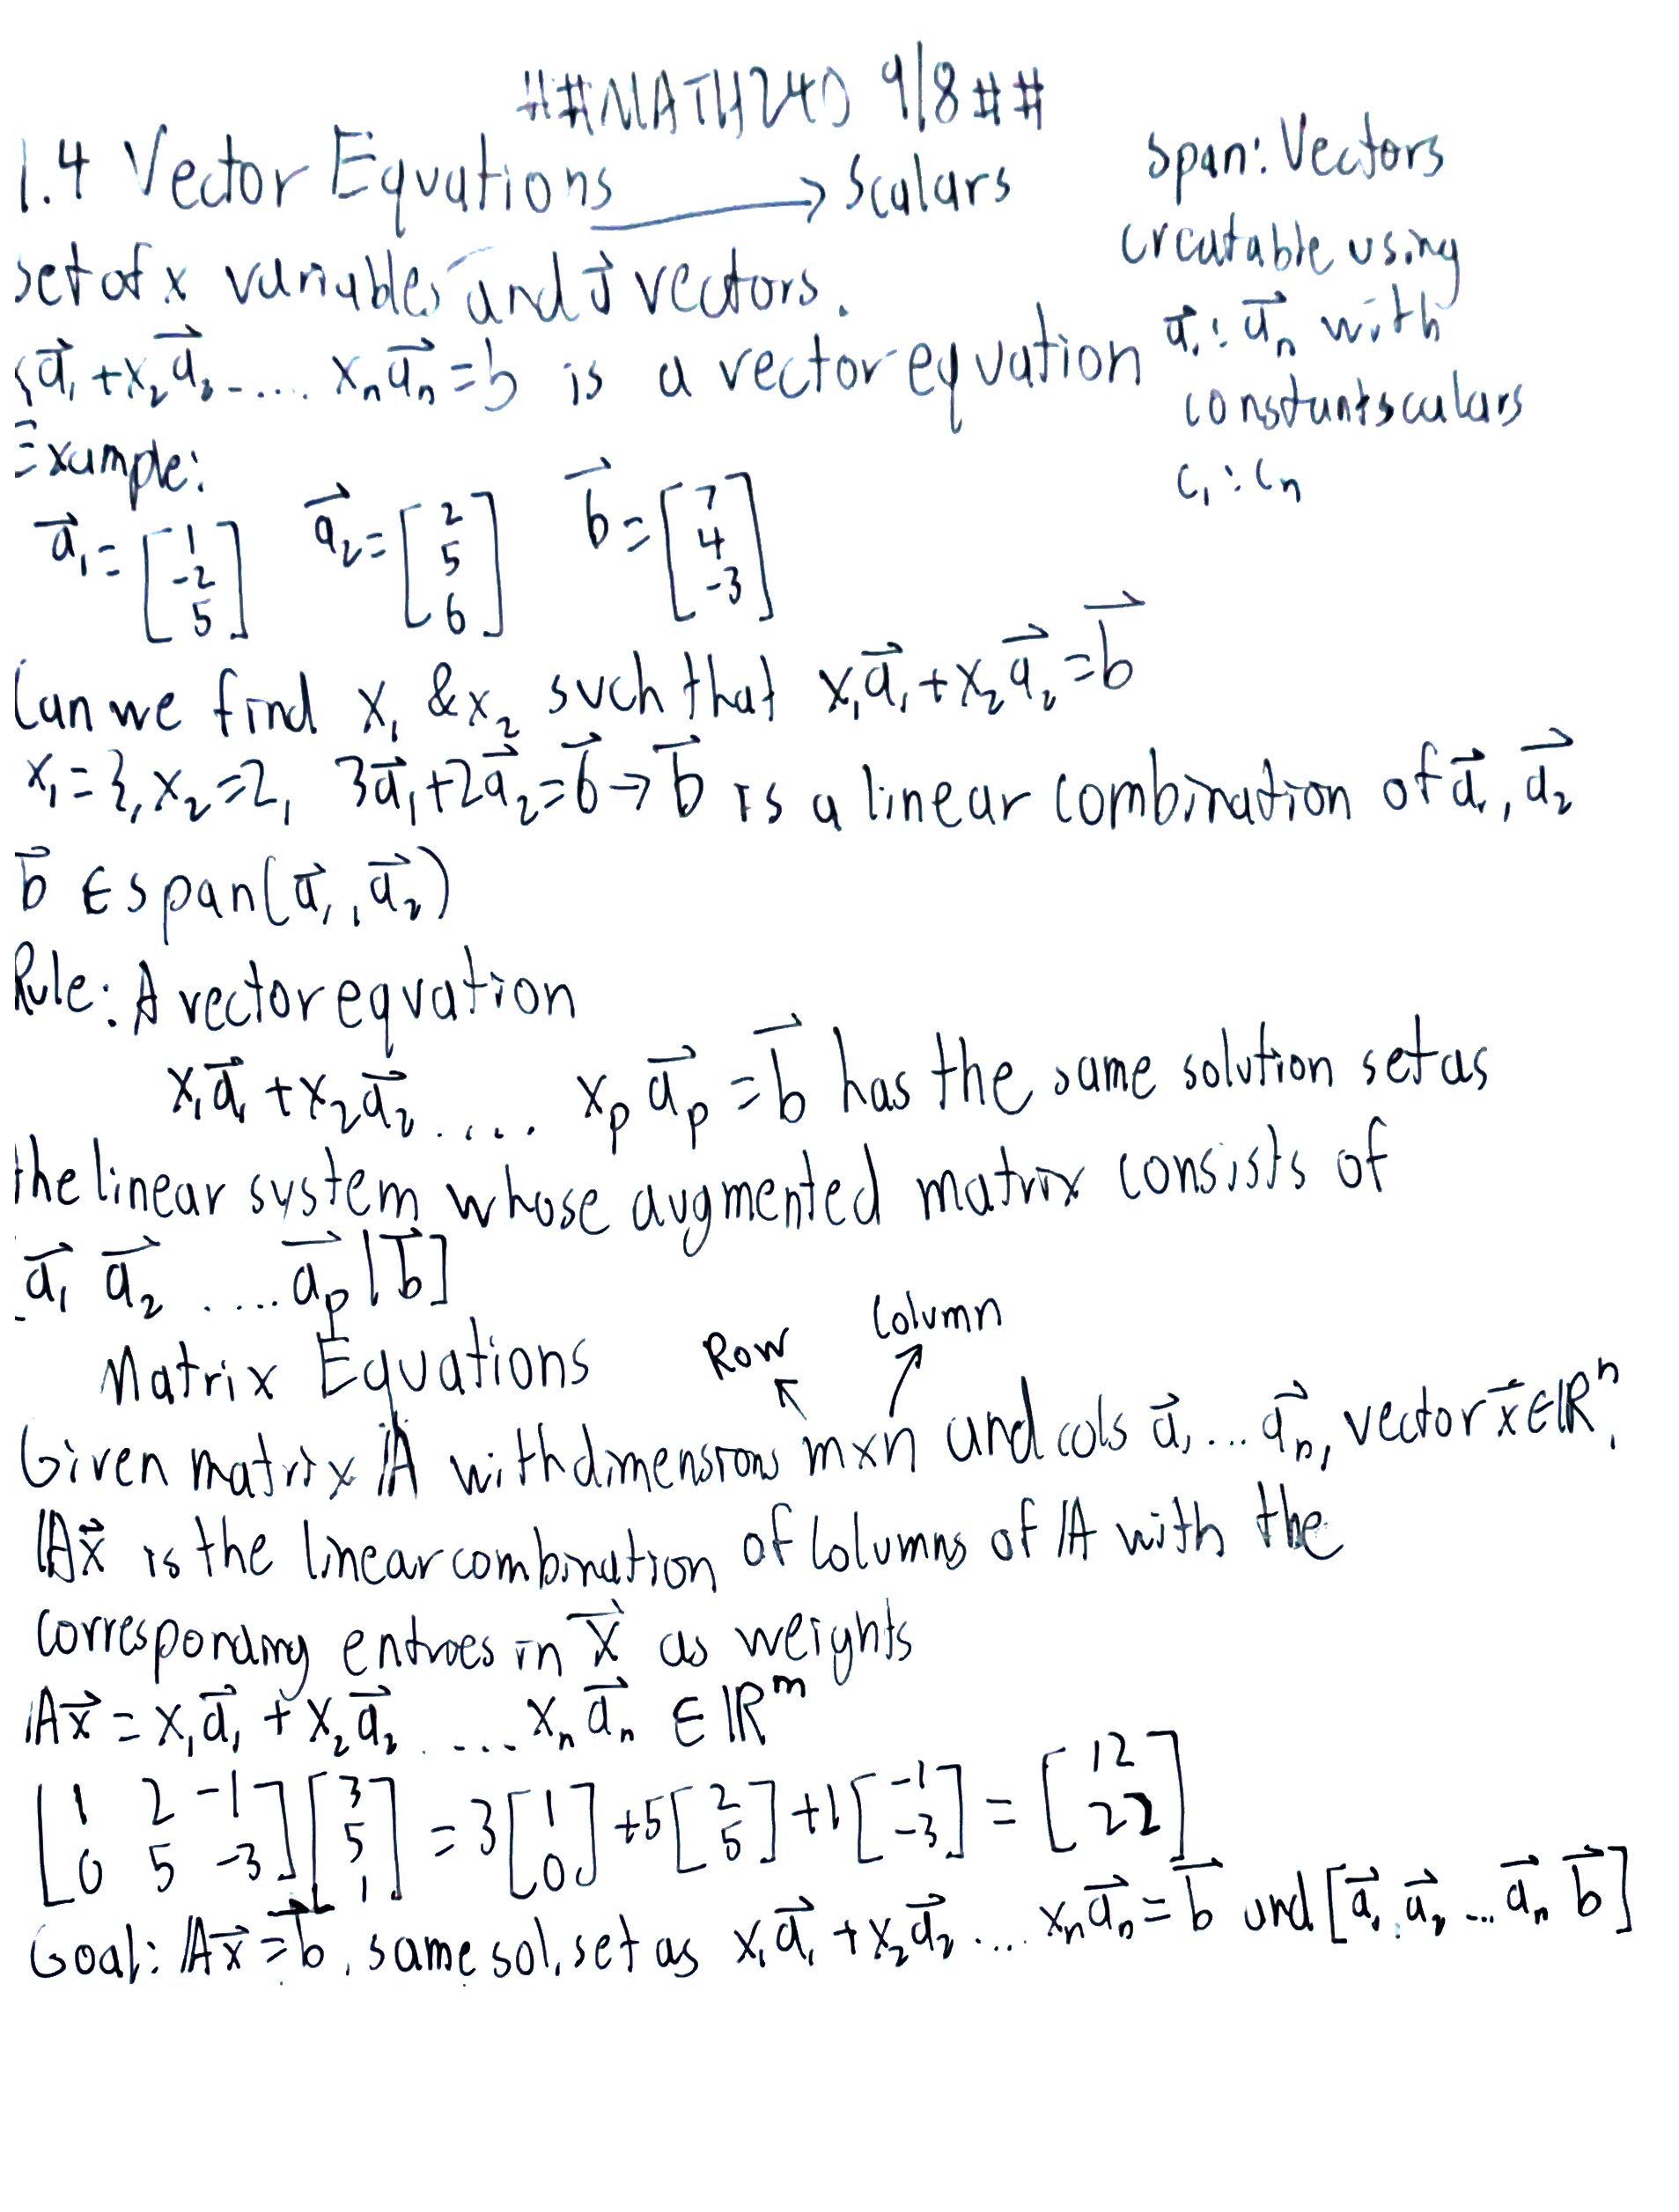 ##MATH240 9/8##
1.4 Vector Equations → scalars
set of x variables and a⃗ vectors.
a⃗₁+x₂a⃗₂ ..... xₙa⃗ₙ=b is a vector equation
span: Vectors
creatable using
a⃗₁: a⃗ₙ with
constant scalars
c₁:cₙ
Example:
a⃗₁=[1 -2 5] a⃗₂=[2 5 6] b⃗=[7 4 -3]
Can we find x₁ & x₂ such that x₁a⃗₁+x₂a⃗₂=b⃗
x₁=3, x₂=2, 3a⃗₁+2a⃗₂=b⃗→b⃗ is a linear combination of a⃗₁, a⃗₂
b⃗ ∈ span(a⃗₁,a⃗₂)
Rule: A vector equation
x₁a⃗₁+x₂a⃗₂ ..... xₚa⃗ₚ=b⃗ has the same solution set as
the linear system whose augmented matrix consists of
a⃗₁ a⃗₂ ..... a⃗ₚ|b⃗]
Matrix Equations Row Column
Given matrix A with dimensions m×n and cols a⃗₁...a⃗ₙ, vector x⃗∈ℝⁿ,
Ax⃗ is the linear combination of columns of A with the
corresponding entries in x⃗ as weights
Ax⃗=x₁a⃗₁+x₂a⃗₂ ..... xₙa⃗ₙ ∈ℝᵐ
[1 2 -1
0 5 -3][3 5 1]=3[1 0]+5[2 5]+1[-1 -3]=[12 22]
Goal: Ax⃗=b⃗, same sol. set as x₁a⃗₁+x₂a⃗₂.... xₙa⃗ₙ=b⃗ and [a⃗₁ a⃗₂ ... a⃗ₙ b⃗]